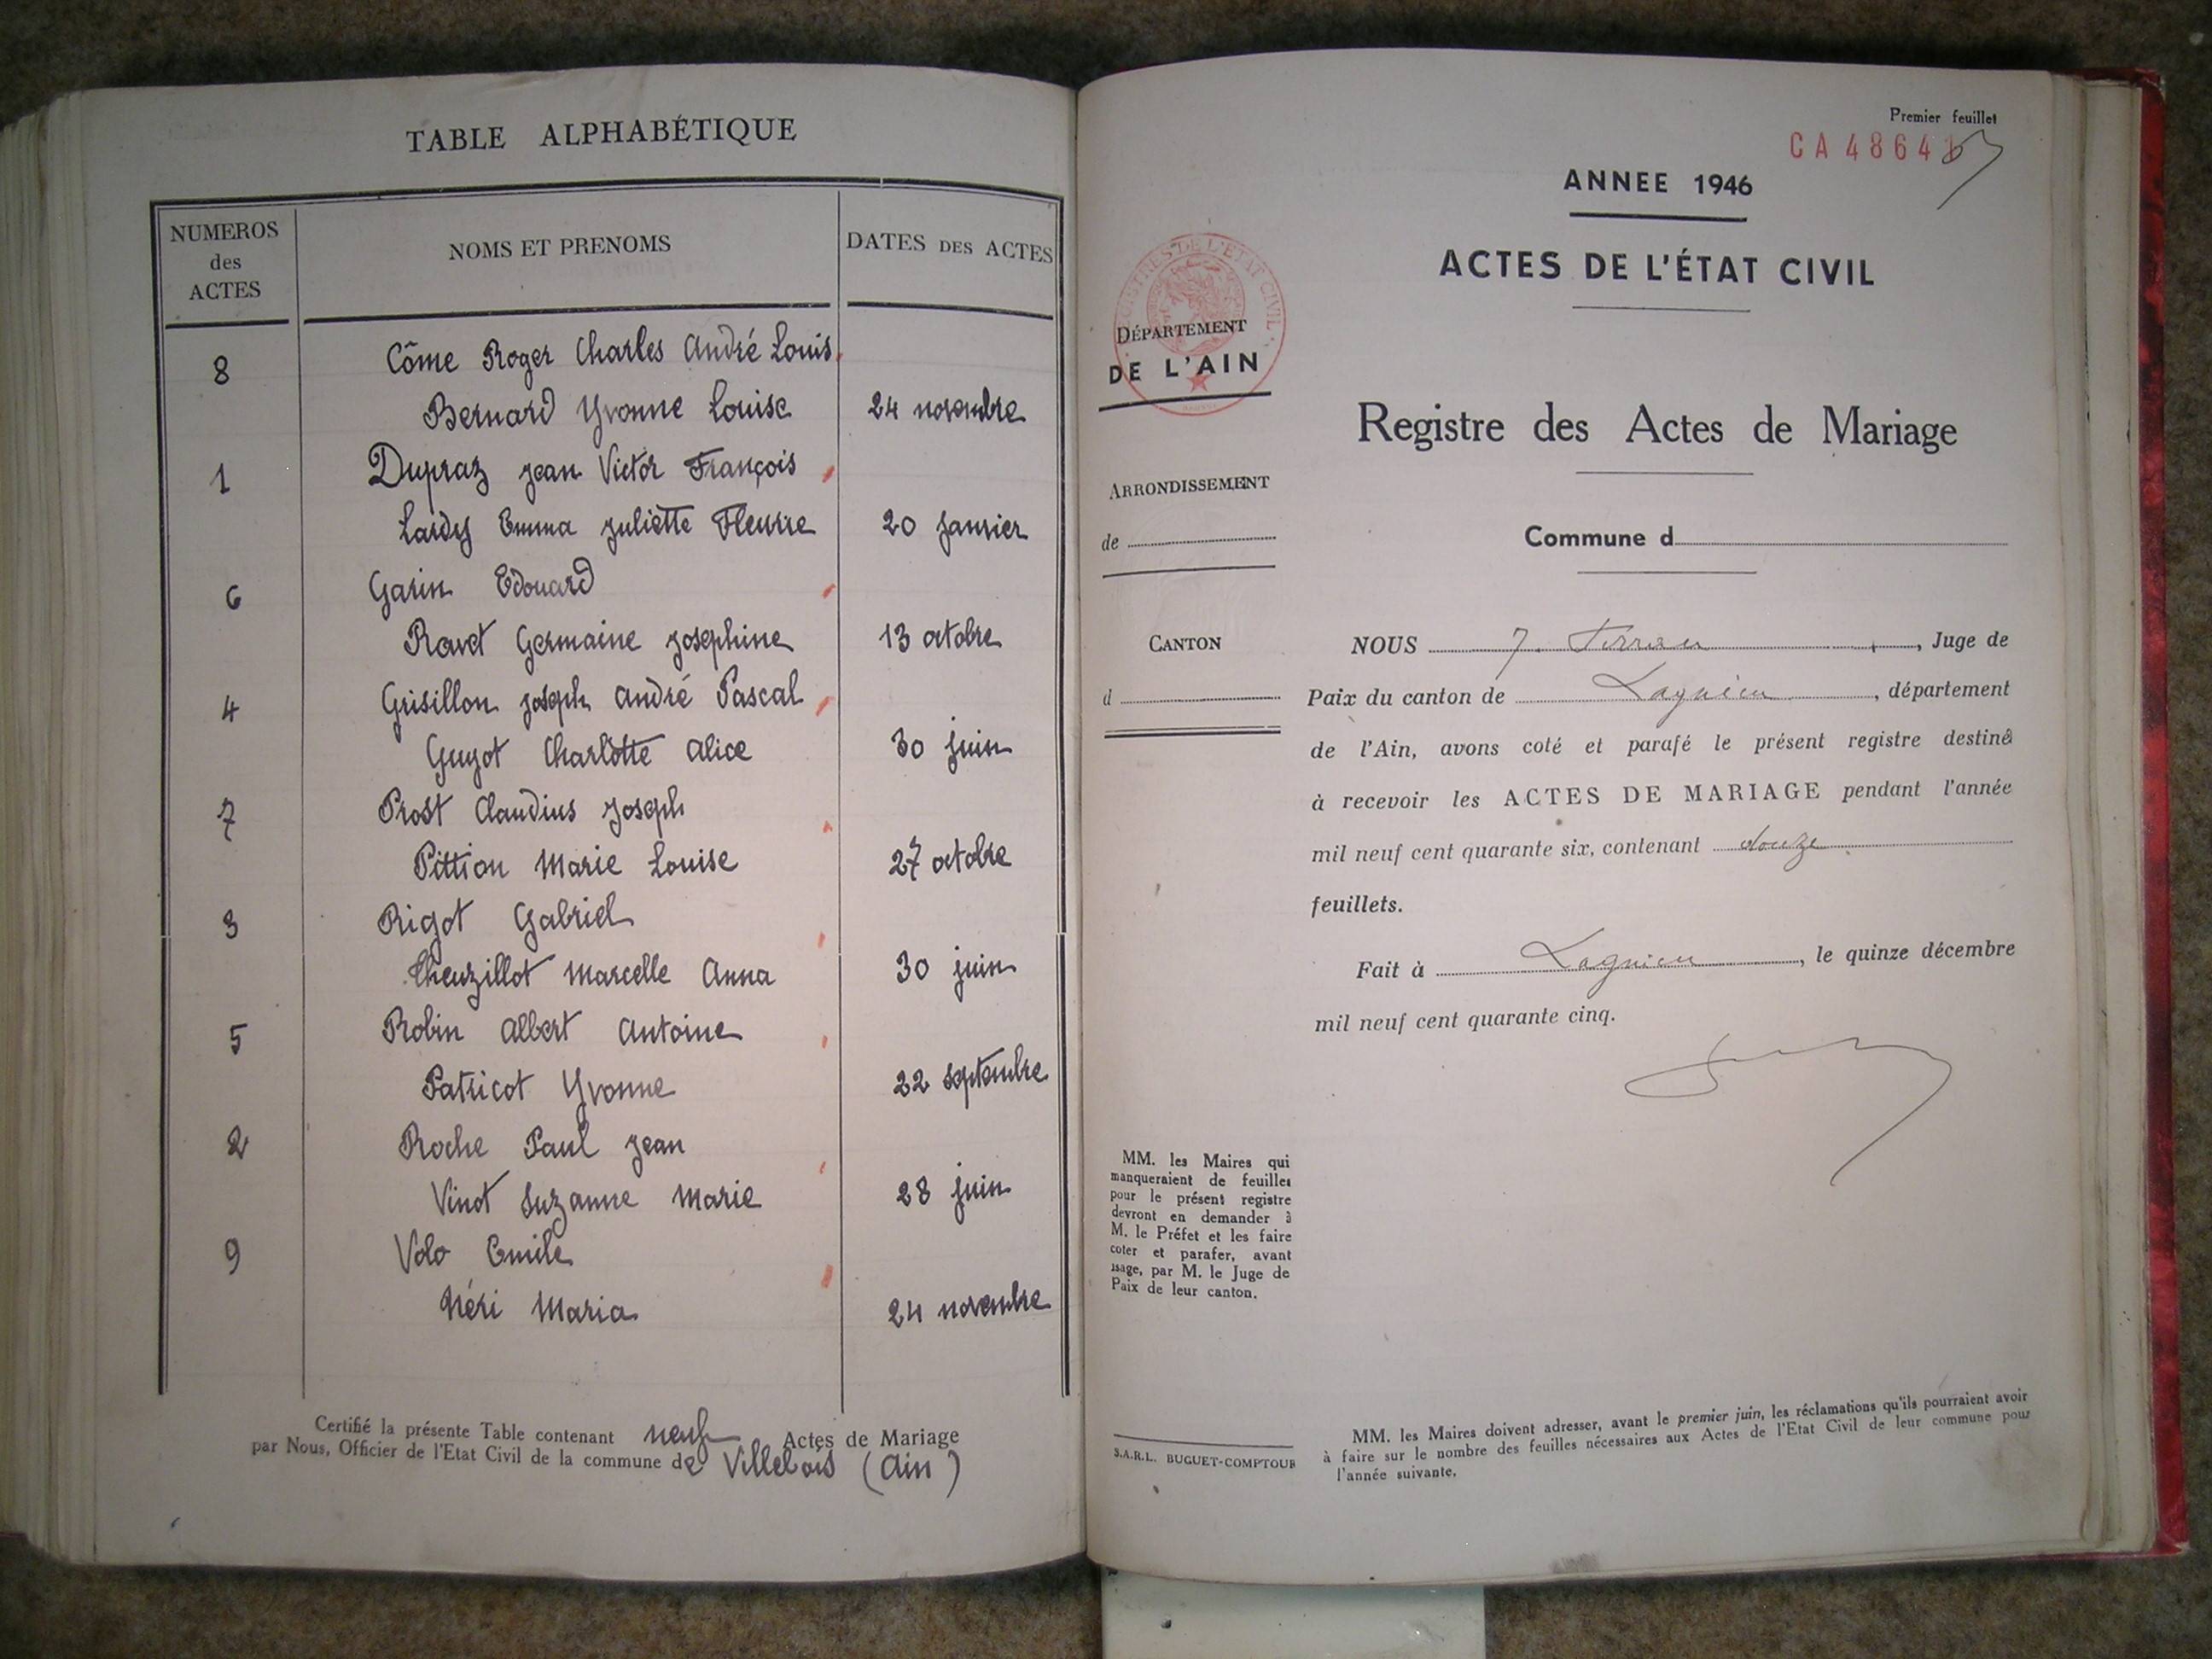 TABLE ALPHABÉTIQUE
NUMEROS des ACTES
NOMS ET PRENOMS
DATES DES ACTES
8 Côme Roger Charles André Louis
Bernard Yvonne Louise 24 novembre
1 Dupraz Jean Victor François
Lardy Emma Juliette Fleurie 20 janvier
6 Garin Edouard
Ravet Germaine Josephine 13 octobre
4 Grisillon Joseph André Pascal
Guyot Charlotte Alice 30 juin
7 Prost Claudius Joseph
Pittion Marie Louise 27 octobre
3 Rigot Gabriel
Cheuzillot Marcelle Anna 30 juin
5 Robin Albert Antoine
Patricot Yvonne 22 septembre
2 Roche Paul Jean
Vinot Suzanne Marie 28 juin
9 Volo Emile
Néri Maria 24 novembre
Certifié la présente Table contenant neuf Actes de Mariage
par Nous, Officier de l'Etat Civil de la commune de Villebois (Ain)
Premier feuillet
CA 4864
ANNEE 1946
ACTES DE L'ÉTAT CIVIL
DÉPARTEMENT
DE L'AIN
Registre des Actes de Mariage
ARRONDISSEMENT
de
Commune d
CANTON
d
NOUS , Juge de
Paix du canton de Lagnieu, département
de l'Ain, avons coté et parafé le présent registre destiné
à recevoir les ACTES DE MARIAGE pendant l'année
mil neuf cent quarante six, contenant douze
feuillets.
Fait à Lagnieu, le quinze décembre
mil neuf cent quarante cinq.
MM. les Maires qui
manqueraient de feuilles
pour le présent registre
devront en demander à
M. le Préfet et les faire
coter et parafer, avant
usage, par M. le Juge de
Paix de leur canton.
S.A.R.L. BUGUET-COMPTOUR
MM. les Maires doivent adresser, avant le premier juin, les réclamations qu'ils pourraient avoir
à faire sur le nombre des feuilles nécessaires aux Actes de l'Etat Civil de leur commune pour
l'année suivante.